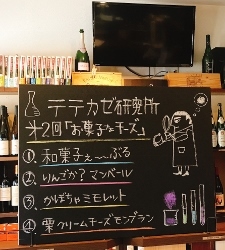 テテカゼ研究所
才2回「お菓子なチーズ」
① 和菓子ぇ〜〜ぶる
② りんごか？マンベール
③ かぼちゃミモレット
④ 栗クリームチーズモンブラン